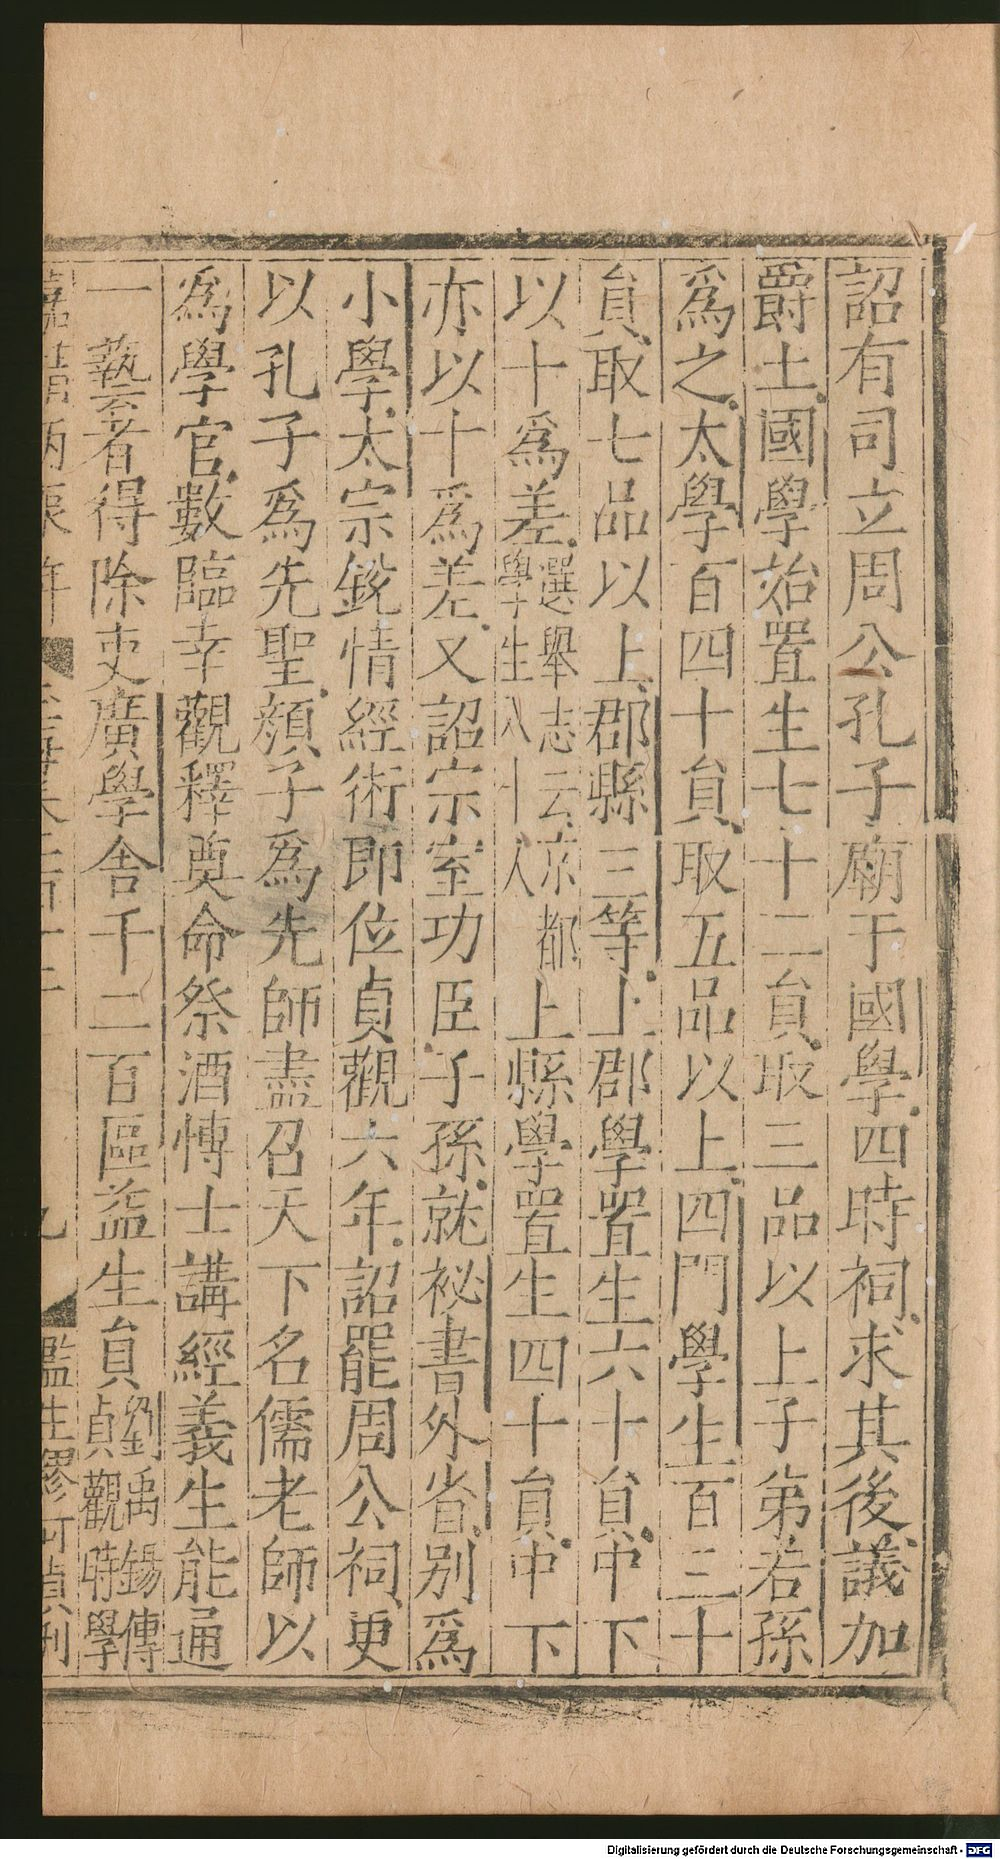 詔有司立周公孔子廟于國學四時祠求其後議加
爵土國學始置生七十二員取三品以上子弟若孫
為之太學百四十員取五品以上四門學生百三十
員取七品以上郡縣三等上郡學置生六十員中下
以十為差選舉志云京都學生八十人上縣學置生四十員中下
亦以十為差又詔宗室功臣子孫就祕書外省別為
小學太宗銳情經術即位貞觀六年詔罷周公祠更
以孔子為先聖顏子為先師盡召天下名儒老師以
為學官數臨幸觀釋奠命祭酒博士講經義生能通
一藝者得除吏廣學舍千二百區益生員劉禹錫傳貞觀時學
嘉靖丙辰年 九 監生廖可貞刊
Digitalisierung gefördert durch die Deutsche Forschungsgemeinschaft - DFG